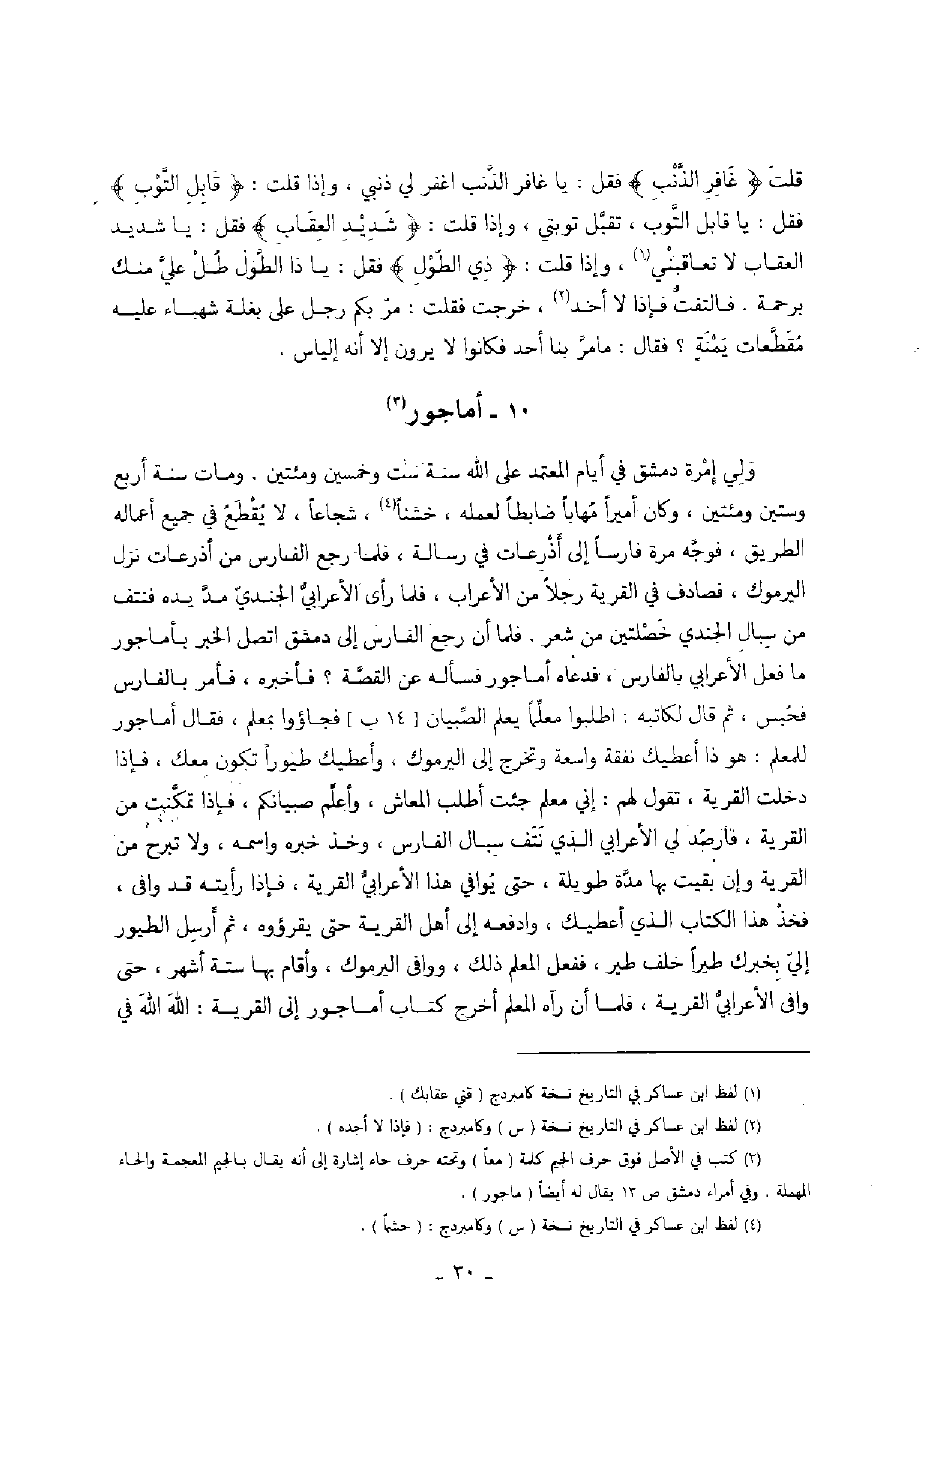 قلتَ ﴿ غَافِرِ الذَّنْبِ ﴾ فقل : يا غافر الذَّنب اغفر لي ذنبي ، وإذا قلت : ﴿ قَابِلِ التَّوْبِ ﴾
فقل : يا قابل التَّوب ، تقبَّل توبتي ، وإذا قلت : ﴿ شَدِيْدِ العِقَابِ ﴾ فقل : يـا شـديـد
العقـاب لا تعـاقبْني(١) ، وإذا قلت : ﴿ ذي الطَّوْلِ ﴾ فقل : يـا ذا الطَّوْل طُلْ عليَّ منـك
برحمة . فـالتفتُّ فـإذا لا أحـد(٢) ، خرجت فقلت : مرّ بكم رجـل على بغلـة شهبـاء عليـه
مُقَطَّعات يَمْنَةٍ ؟ فقال : مامرَّ بنا أحد فكانوا لا يرون إلا أنه إلياس .
١٠ ـ أماجور(٣)
وَلِي إمْرة دمشق في أيام المعتمد على الله سنـة ستّ وخمسين ومئتين . ومـات سنـة أربع
وستين ومئتين ، وكان أميراً مُهاباً ضابطاً لعمله ، خشناً(٤) ، شجاعاً ، لا يُقْطَعُ في جميع أعماله
الطريق ، فوجَّه مرة فارسـاً إلى أَذْرِعات في رسـالة ، فلمـا رجع الفـارس من أذرعـات نزل
اليرموك ، فصادف في القرية رجلاً من الأعراب ، فلما رأى الأعرابيُّ الجنـديَّ مـدَّ يـده فنتف
من سِبال الجندي خَصْلتين من شعر . فلما أن رجع الفـارس إلى دمشق اتصل الخبر بـأمـاجور
ما فعل الأعرابي بالفارس ، فدعاه أمـاجور فسألـه عن القصَّـة ؟ فـأخبره ، فـأمر بـالفـارس
فحُبس ، ثم قال لكاتبه : اطلبوا معلِّماً يعلم الصِّبيان [ ١٤ ب ] فجـاؤوا بمعلم ، فقـال أمـاجور
للمعلم : هو ذا أعطيك نفقة واسعة وتخرج إلى اليرموك ، وأعطيـك طيوراً تكون معـك ، فـإذا
دخلت القرية ، تقول لهم : إني معلم جئت أطلب المعاش ، وأعلِّم صبيانكم ، فـإذا تمكَّنْتَ من
القرية ، فارصُد لي الأعرابي الـذي نَتَف سِبـال الفـارس ، وخـذ خبره واسمـه ، ولا تبرح من
القرية وإن بقيت بها مدَّة طويلة ، حتى يُوافي هذا الأعرابيُّ القرية ، فـإذا رأيتـه قـد وافى ،
فخذْ هذا الكتاب الـذي أعطيـك ، وادفعـه إلى أهل القريـة حتى يقرؤوه ، ثم أرسل الطيور
إليّ بخبرك طيراً خلف طير ، ففعل المعلم ذلك ، ووافى اليرموك ، وأقام بهـا ستـة أشهر ، حتى
وافى الأعرابيُّ القريـة ، فلمـا أن رآه المعلم أخرج كتـاب أمـاجور إلى القريـة : اللهَ اللهَ في
(١) لفظ ابن عساكر في التاريخ نسخة كامبردج ( قني عقابك ) .
(٢) لفظ ابن عساكر في التاريخ نسخة ( س ) وكامبردج : ( فإذا لا أجده ) .
(٣) كتب في الأصل فوق حرف الجيم كلمة ( معاً ) وتحته حرف حاء إشارة إلى أنه يقال بـالجيم المعجمـة والحـاء
المهملة . وفي أمراء دمشق ص ١٣ يقال له أيضاً ( ماجور ) .
(٤) لفظ ابن عساكر في التاريخ نسخة ( س ) وكامبردج : ( حشماً ) .
ـ ٣٠ ـ